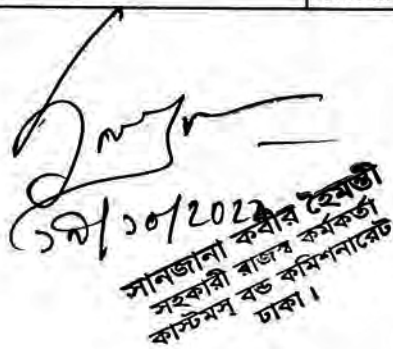 সানজানা কবীর হৈমন্তী
সহকারী রাজস্ব কর্মকর্তা
কাস্টমস্ বন্ড কমিশনারেট
ঢাকা।